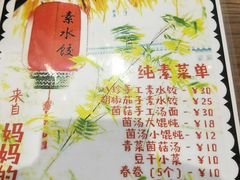 素水饺
纯素菜单
手工素水饺 - ¥30
手工素水饺 - ¥25
菌菇手工汤面 - ¥30
菌汤大馄饨 - ¥18
菌汤小馄饨 - ¥12
青菜菌菇汤 - ¥10
豆干小菜 - ¥10
春卷（5个） - ¥10
来自
妈妈的